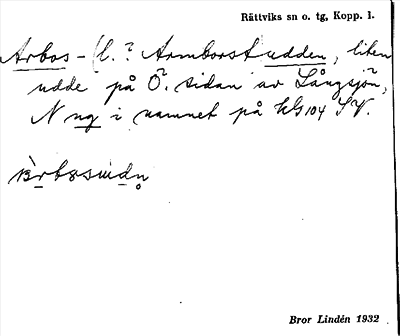 Rättviks sn o. tg, Kopp. l.
Arbos- (l. ? Armborstudden, liten
udde på Ö. sidan av Långsjön,
N ng i namnet på kbl 104 SV.
Bror Lindén 1932